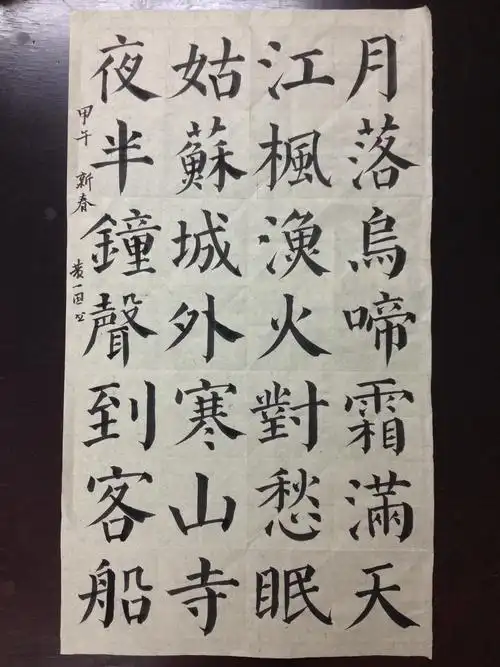 月落烏啼霜滿天
江楓漁火對愁眠
姑蘇城外寒山寺
夜半鐘聲到客船
甲午 新春 黄一